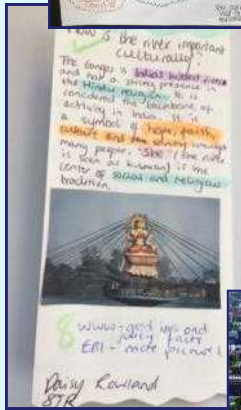 How is the river important
culturally?
The Ganges is India's holiest river
and has a strong presence in
the Hindu religion. It is
considered the backbone of
activity in India. It is
a symbol of hope, faith,
culture and amongst
many people. She (the river
is seen as a woman) is the
center of social and religious
tradition.
8 WWW - good info and
juicy facts
EBI - more pictures!
Daisy Rowland
8TR